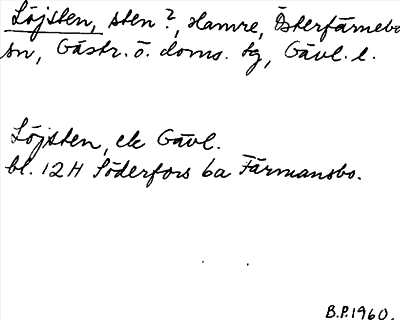 Löjsten, sten?, Hamre, Österfärnebo
sn, Gästr. ö. doms. tg, Gävl. l.
Löjsten, ek Gävl.
bl. 12H Söderfors 6a Färmansbo.
B.P. 1960.